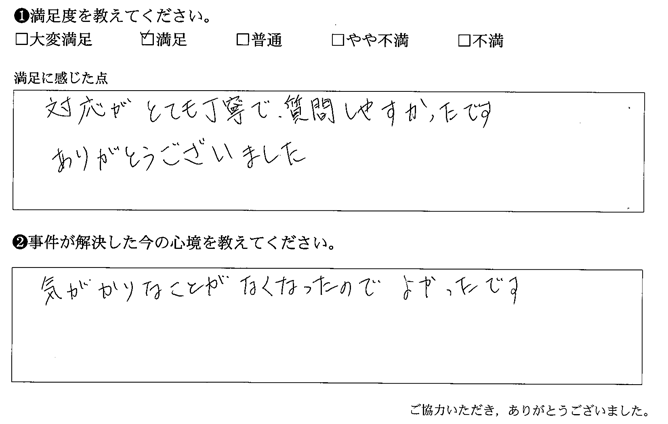 ❶満足度を教えてください。
□大変満足 ☑満足 □普通 □やや不満 □不満
満足に感じた点
対応がとても丁寧で、質問しやすかったです
ありがとうございました
❷事件が解決した今の心境を教えてください。
気がかりなことがなくなったので よかったです
ご協力いただき，ありがとうございました。